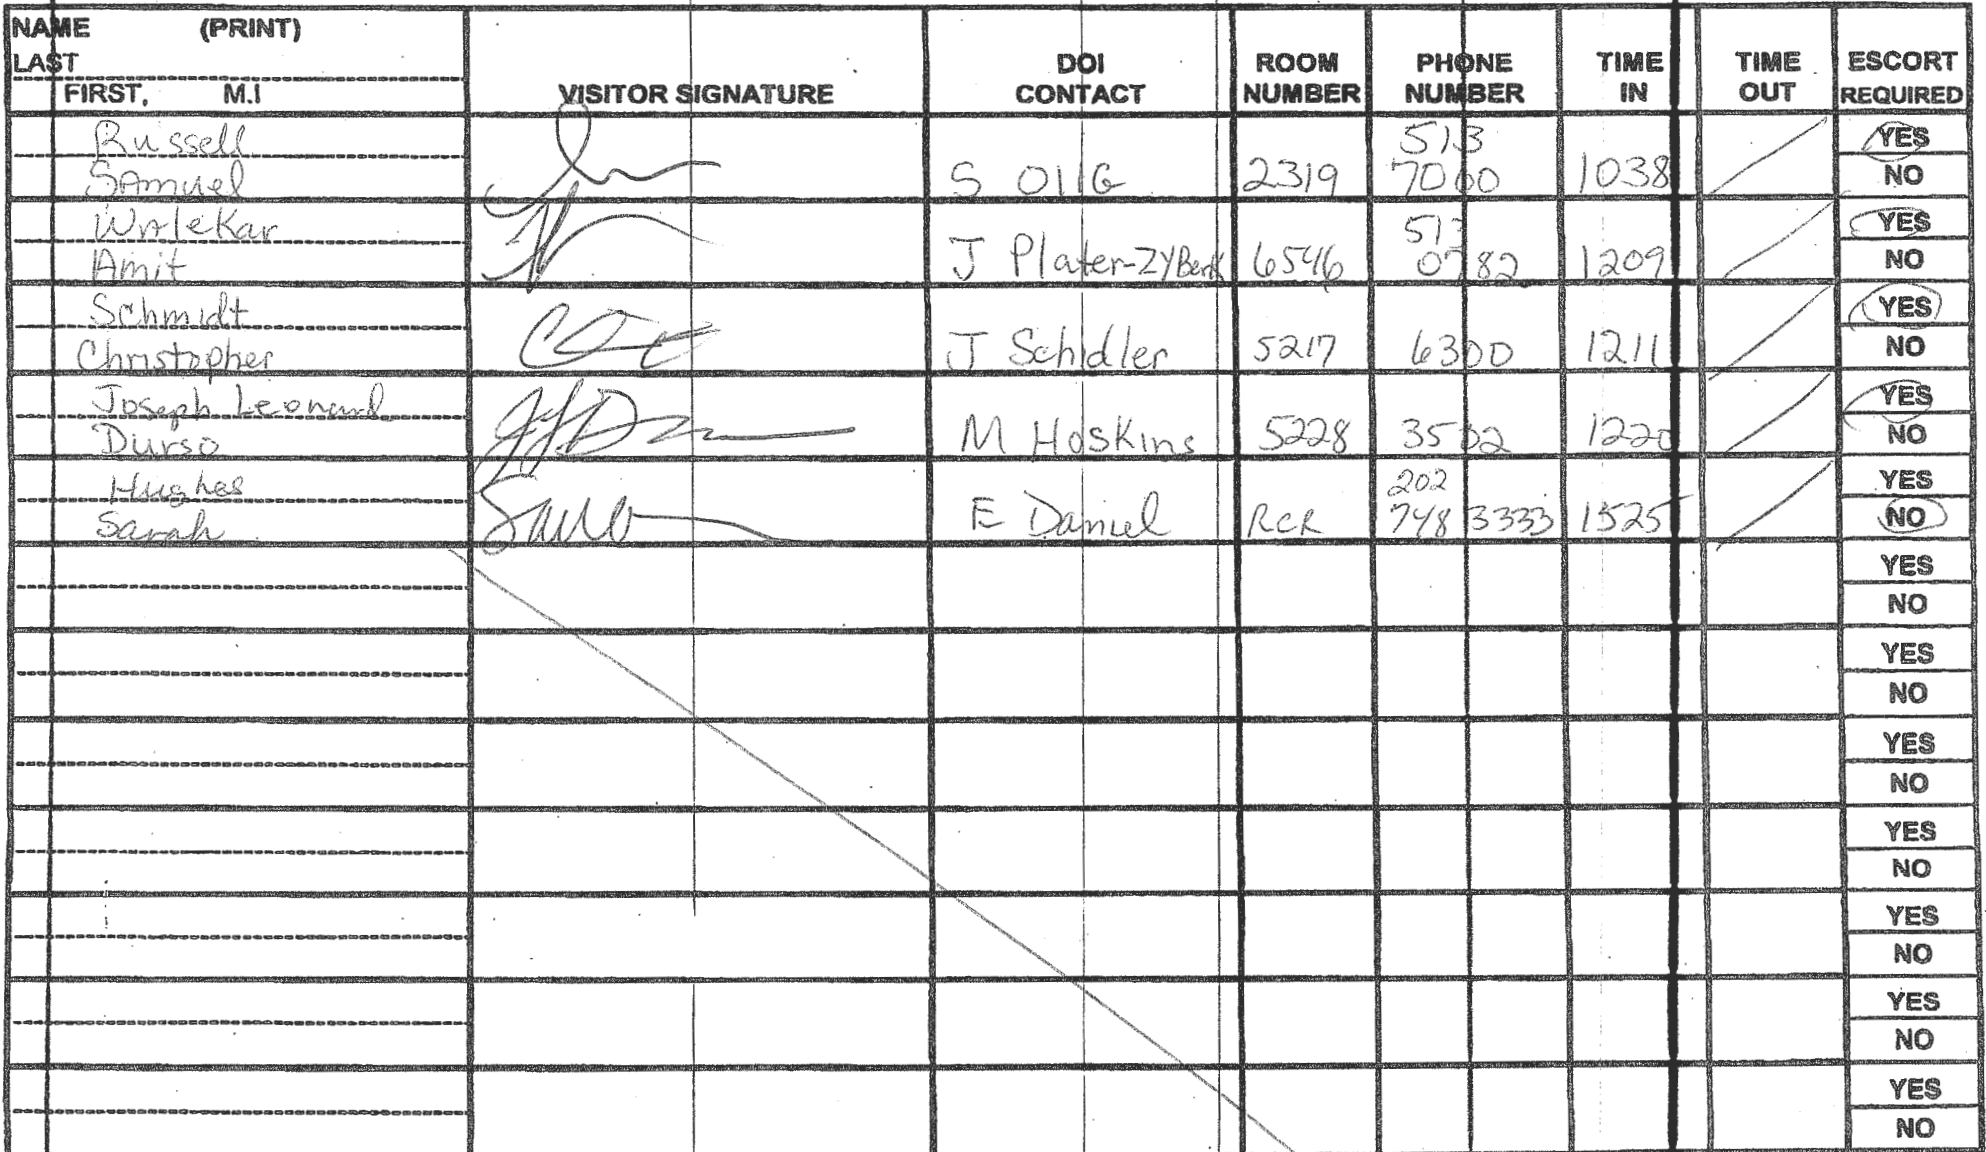 NAME (PRINT)
LAST
FIRST, M.I
VISITOR SIGNATURE
DOI CONTACT
ROOM NUMBER
PHONE NUMBER
TIME IN
TIME OUT
ESCORT REQUIRED
Russell 513 YES
Samuel S 2319 7000 1038 NO
Walekar 513 YES
Amit J Plater-ZyBerk 6546 0782 1209 NO
Schmidt YES
Christopher J Schidler 5217 6300 1211 NO
Joseph Leonard YES
Durso M Hoskins 5228 3502 1220 NO
Hughes 202 YES
Sarah E Daniel RCR 748 3333 1525 NO
YES
NO
YES
NO
YES
NO
YES
NO
YES
NO
YES
NO
YES
NO